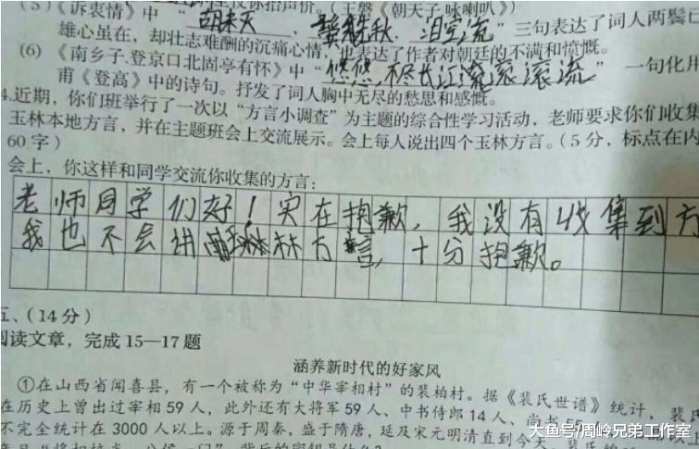 (5)《诉衷情》中“胡未灭,鬓先秋,泪空流”三句表达了词人两鬓
雄心虽在,却壮志难酬的沉痛心情,也表达了作者对朝廷的不满和愤慨。
(6)《南乡子·登京口北固亭有怀》中“悠悠,不尽长江滚滚流”一句化用
甫《登高》中的诗句。抒发了词人胸中无尽的愁思和感慨。
4.近期,你们班举行了一次以“方言小调查”为主题的综合性学习活动,老师要求你们收集
玉林本地方言,并在主题班会上交流展示。会上每人说出四个玉林方言。(5分,标点在内
60字)
会上,你这样和同学交流你收集的方言:
老师同学们好!实在抱歉,我没有收集到方
我也不会讲林方言,十分抱歉。
五、(14分)
阅读文章,完成15—17题
涵养新时代的好家风
①在山西省闻喜县,有一个被称为“中华宰相村”的裴柏村。据《裴氏世谱》统计,裴
在历史上曾出过宰相59人,此外还有大将军59人、中书侍郎14人、尚书
不完全统计在3000人以上。源于周秦,盛于隋唐,延及宋元明清直到今天
大鱼号/周岭兄弟工作室